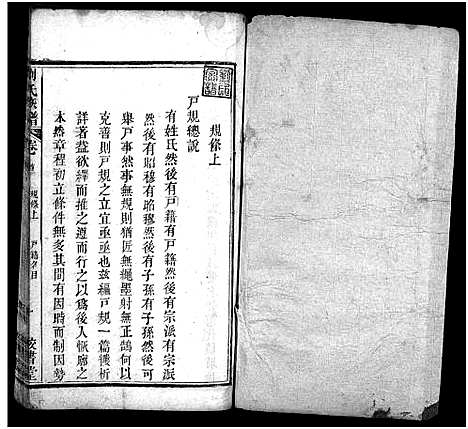 規條上
戶規總說
有姓氏然後有戶籍有戶籍然後有宗派有宗派
然後有昭穆有昭穆然後有子孫有子孫然後可
舉戶事然事無規則猶匠無繩墨射無正鵠何以
克善則戶規之立宜亟亟也茲編戶規一篇僕析
詳著益欲繹而推之遵而行之以為後人恢廓之
本然章程初立條件無多其間有因時制宜因勢
氏族譜
規條上
戶籍夕目
一
校書堂